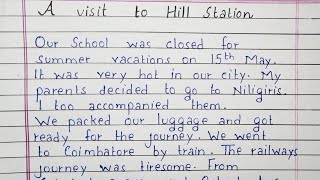 A visit to Hill Station
Our School was closed for
summer vacations on 15th May.
It was very hot in our city. My
parents decided to go to Niligiris.
I too accompanied them.
We packed our luggage and got
ready for the journey. We went
to Coimbatore by train. The railways
journey was tiresome. From